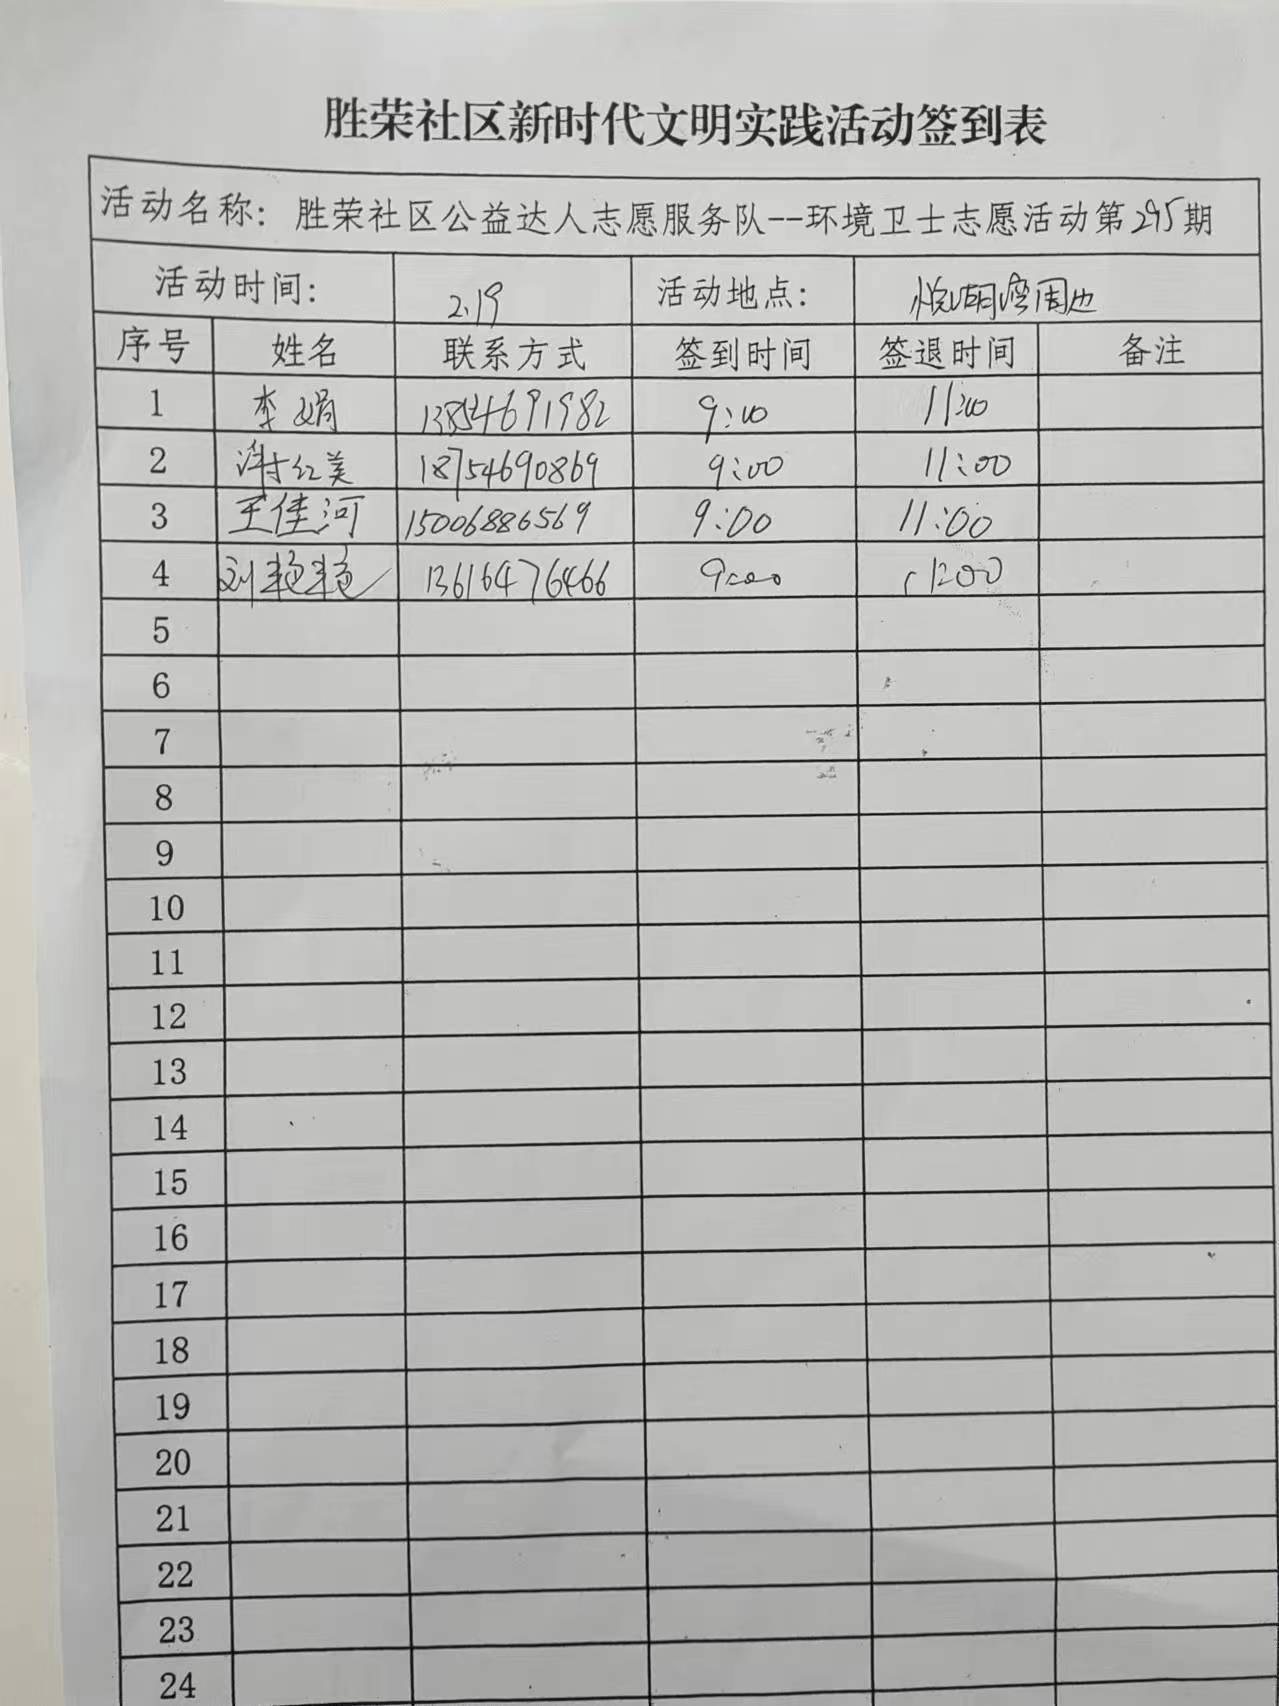 胜荣社区新时代文明实践活动签到表
活动名称：胜荣社区公益达人志愿服务队--环境卫士志愿活动第295期
活动时间： 2.19 活动地点： 悦湖湾周边
序号 姓名 联系方式 签到时间 签退时间 备注
1 李娟 13854691982 9:00 11:00
2 谢红美 18754690869 9:00 11:00
3 王佳河 15006886569 9:00 11:00
4 刘艳艳 13616476466 9:00 11:00
5
6
7
8
9
10
11
12
13
14
15
16
17
18
19
20
21
22
23
24